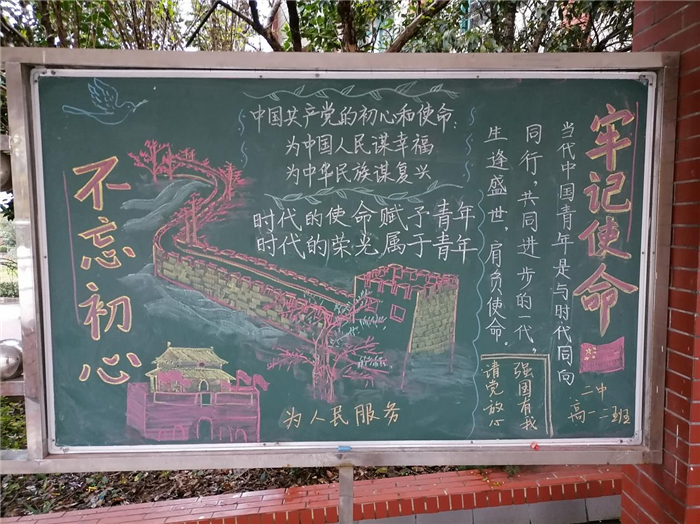 不忘初心
中国共产党的初心和使命:
为中国人民谋幸福
为中华民族谋复兴
时代的使命赋予青年
时代的荣光属于青年
牢记使命
当代中国青年是与时代同向
同行,共同进步的一代,
生逢盛世,肩负使命。
强国有我
请党放心
为人民服务
二中
高一二班